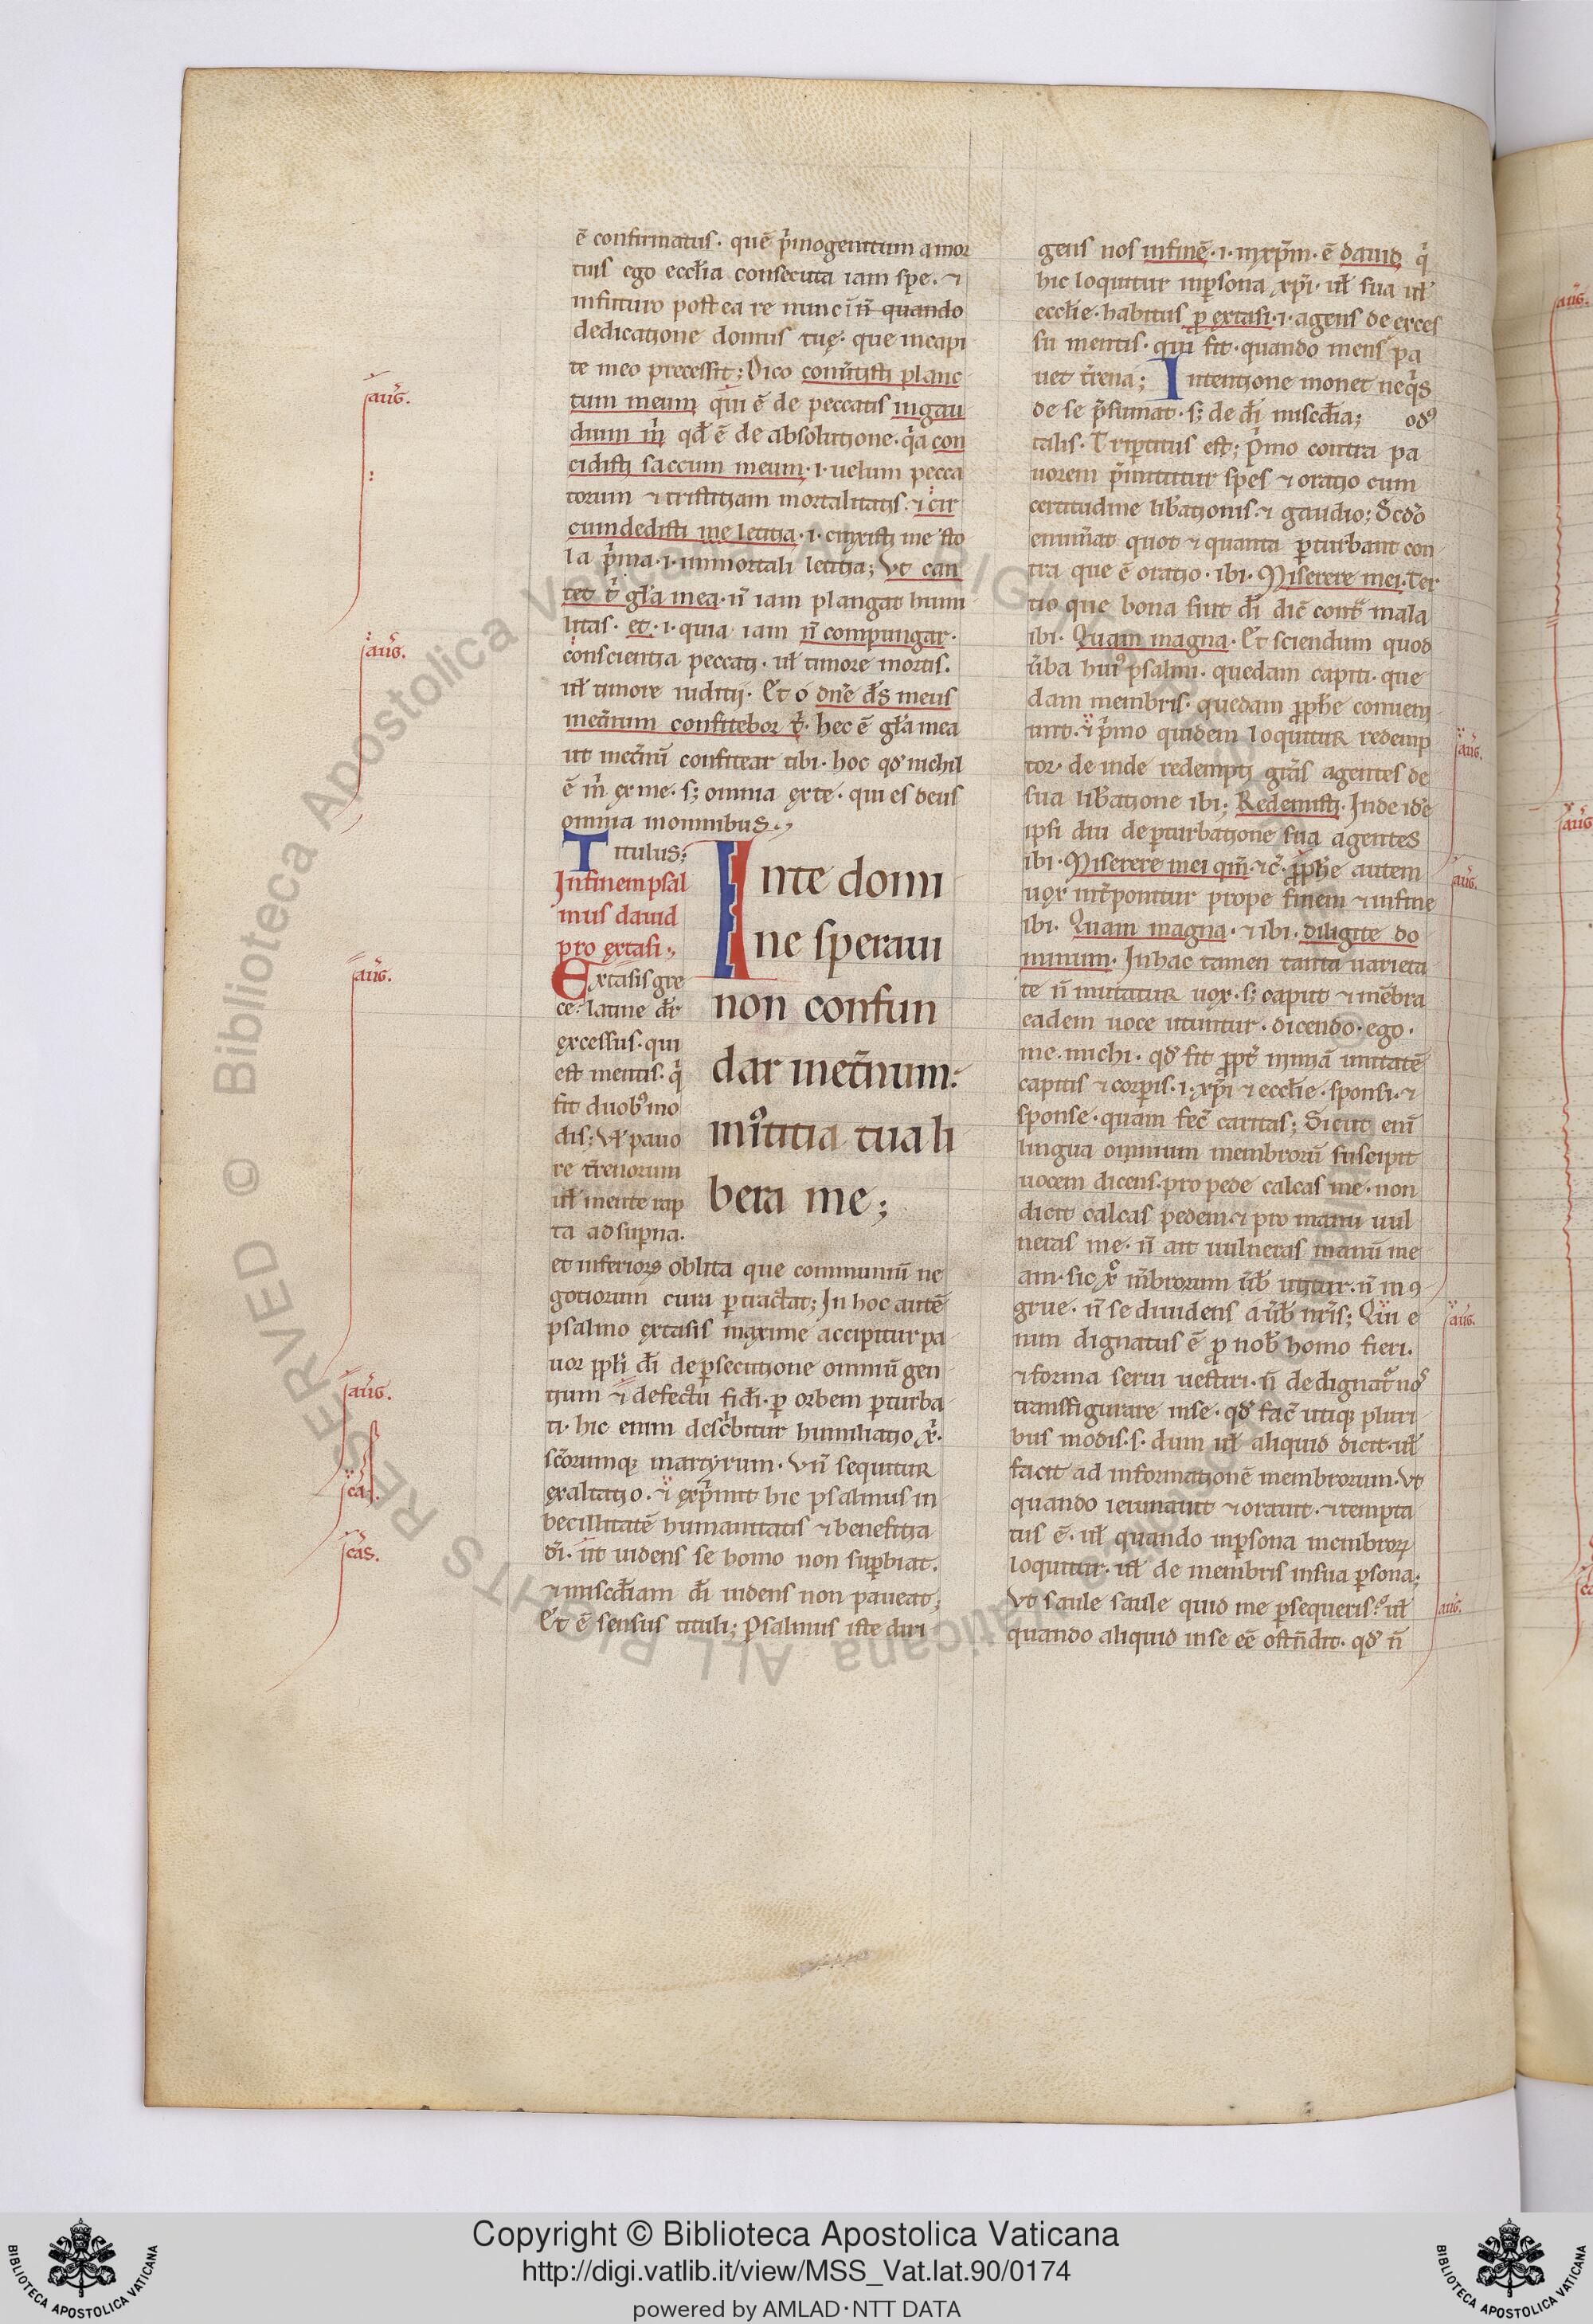 ē confirmatus. quē p̄mogenitum a mor
tuis ego eccl̄ia consecuta iam spe. ⁊
in futuro postea re nunc in̄ quando
dedicatione domus tuę. que in capi
te meo precessit; Dico conuͥtisti planc
tum meum qui ē de peccatis in gau
dium m̄ qđ ē de absolutione. qͣa con
cidisti saccum meum .i. uelum pecca
torum ⁊ tristitiam mortalitatis. ⁊ cir
cumdedisti me letitia .i. cinxisti me sto
la p̄ma .i. immortali letitia; Vt can
tet t̄ gl̄a mea. n̄ iam plangat humi
litas. et .i. quia iam n̄ compungar.
conscientia peccati. ul̄ timore mortis.
ul̄ timore iuditii. Et o dn̄e ds̄ meus
inet̄num confitebor t̄. hec ē gl̄a mea
ut inet̄nū confitear tibi. hoc qđ nichil
ē m̄ ex me. s; omnia ex te. qui es deus
omnia in omnibus.
Titulus;
In finem psal
mus dauid
pro extasi;
Inte domi
ne speraui
non confun
dar inet̄num:
in iͧtitia tua li
bera me;
Extasis gre
ce. latine dr̄
excessus. qui
est mentis. qͥ
fit duobꝰ mo
dis; Vl̄ pauo
re t̄renorum
ul̄ mente rap
ta ad sup̄na.
et inferiorꝝ oblita que communiū ne
gotiorum cura ꝑtractat; In hoc autē
psalmo extasis maxime accipitur pa
uor ppl̄i dī de ꝑsecutione omniū gen
tium ⁊ defectū fidei. ꝑ orbem ꝑturba
ti. hic enim descͥbitur humiliatio xͥ.
scōrumqꝫ martyrum. Vn̄ sequitur
exaltatio. ⁊ exp̄mit hic psalmus in
becillitatē humanitatis ⁊ benefitia
dī. ut uidens se homo non suꝑbiat.
⁊ miscđiam dī uidens non paueat;
Et ē sensus tituli; Psalmus iste diri
gens nos in finē .i. in xp̄m. ē dauid qͥ
hic loquitur in ꝑsona xp̄i. ul̄ sua ul̄
eccl̄ie. habitus ꝓ extasi .i. agens de exces
su mentis. qui fit. quando mens pa
uet t̄rena; Intentione monet neqͥs
de se p̄sumat. s; de dī miscđia; odꝰ
talis. Tripͣtitus est; Pͥmo contra pa
uorem p̄mittitur spes ⁊ oratio cum
certitudine liƀationis. ⁊ gaudio; Scđo
enum̄at quot ⁊ quanta ꝑturbant con
tra que ē oratio. ibi. Miserere mei. Ter
tio que bona sunt dī dic̄ cont̄ mala
ibi. Quam magna. Et sciendum quod
ūba huiꝰ psalmi. quedam capiti. que
dam membris. quedam ꝓph̄e conueni
unt. ⁊ pͥmo quidem loquitur redemp
tor. de inde redempti grās agentes de
sua liƀatione ibi; Redemisti. Inde idē
ipsi diu de ꝑturbatione sua agentes
ibi. Miserere mei qm̄. ⁊c̄. ꝓph̄e autem
uox int̄ponitur prope finem ⁊ in fine
ibi. Quam magna. ⁊ ibi. diligite do
minum. In hac tamen tanta uarieta
te n̄ mutatur uox. s; caput ⁊ mēbra
eadem uoce utuntur. dicendo. ego.
me. michi. qđ fit ꝓpt̄ nimiā unitatē
capitis ⁊ corꝑis .i. xp̄i ⁊ eccl̄ie. sponsi. ⁊
sponse. quam fec̄ caritas; Sicut enī
lingua omnium membrorū suscipit
uocem dicens. pro pede calcas me. non
dicit calcas pedem. ⁊ pro manu uul
neras me. n̄ ait uulneras manū me
am. sic xͦ m̄brorum ūƀ utitur. n̄ inꝯ
grue. n̄ se diuidens a ūƀ nr̄is; Qui e
nim dignatus ē ꝓ noƀ homo fieri.
⁊ forma serui uestiri. n̄ dedignat̄ noˢ
transfigurare in se. qđ fac̄ utiqꝫ pluri
bus modis. s. dum ul̄ aliquid dicit. ul̄
facit ad informationē membrorum. Vt
quando ieiunauit ⁊ orauit. ⁊ tempta
tus ē. ul̄ quando in ꝑsona membroꝝ
loquitur. ul̄ de membris in sua ꝑsona;
Vt saule saule quid me ꝑsequeris? ul̄
quando aliquid in se eē ostn̄dit. qđ n̄
auḡ.
auḡ.
auḡ.
auḡ.
cas.
cas.
auḡ.
auḡ.
auḡ.
auḡ.
auḡ.
auḡ.
© Biblioteca Apostolica Vaticana ALL RIGHTS RESERVED
Copyright © Biblioteca Apostolica Vaticana
http://digi.vatlib.it/view/MSS_Vat.lat.90/0174
powered by AMLAD·NTT DATA
BIBLIOTECA APOSTOLICA VATICANA
BIBLIOTECA APOSTOLICA VATICANA